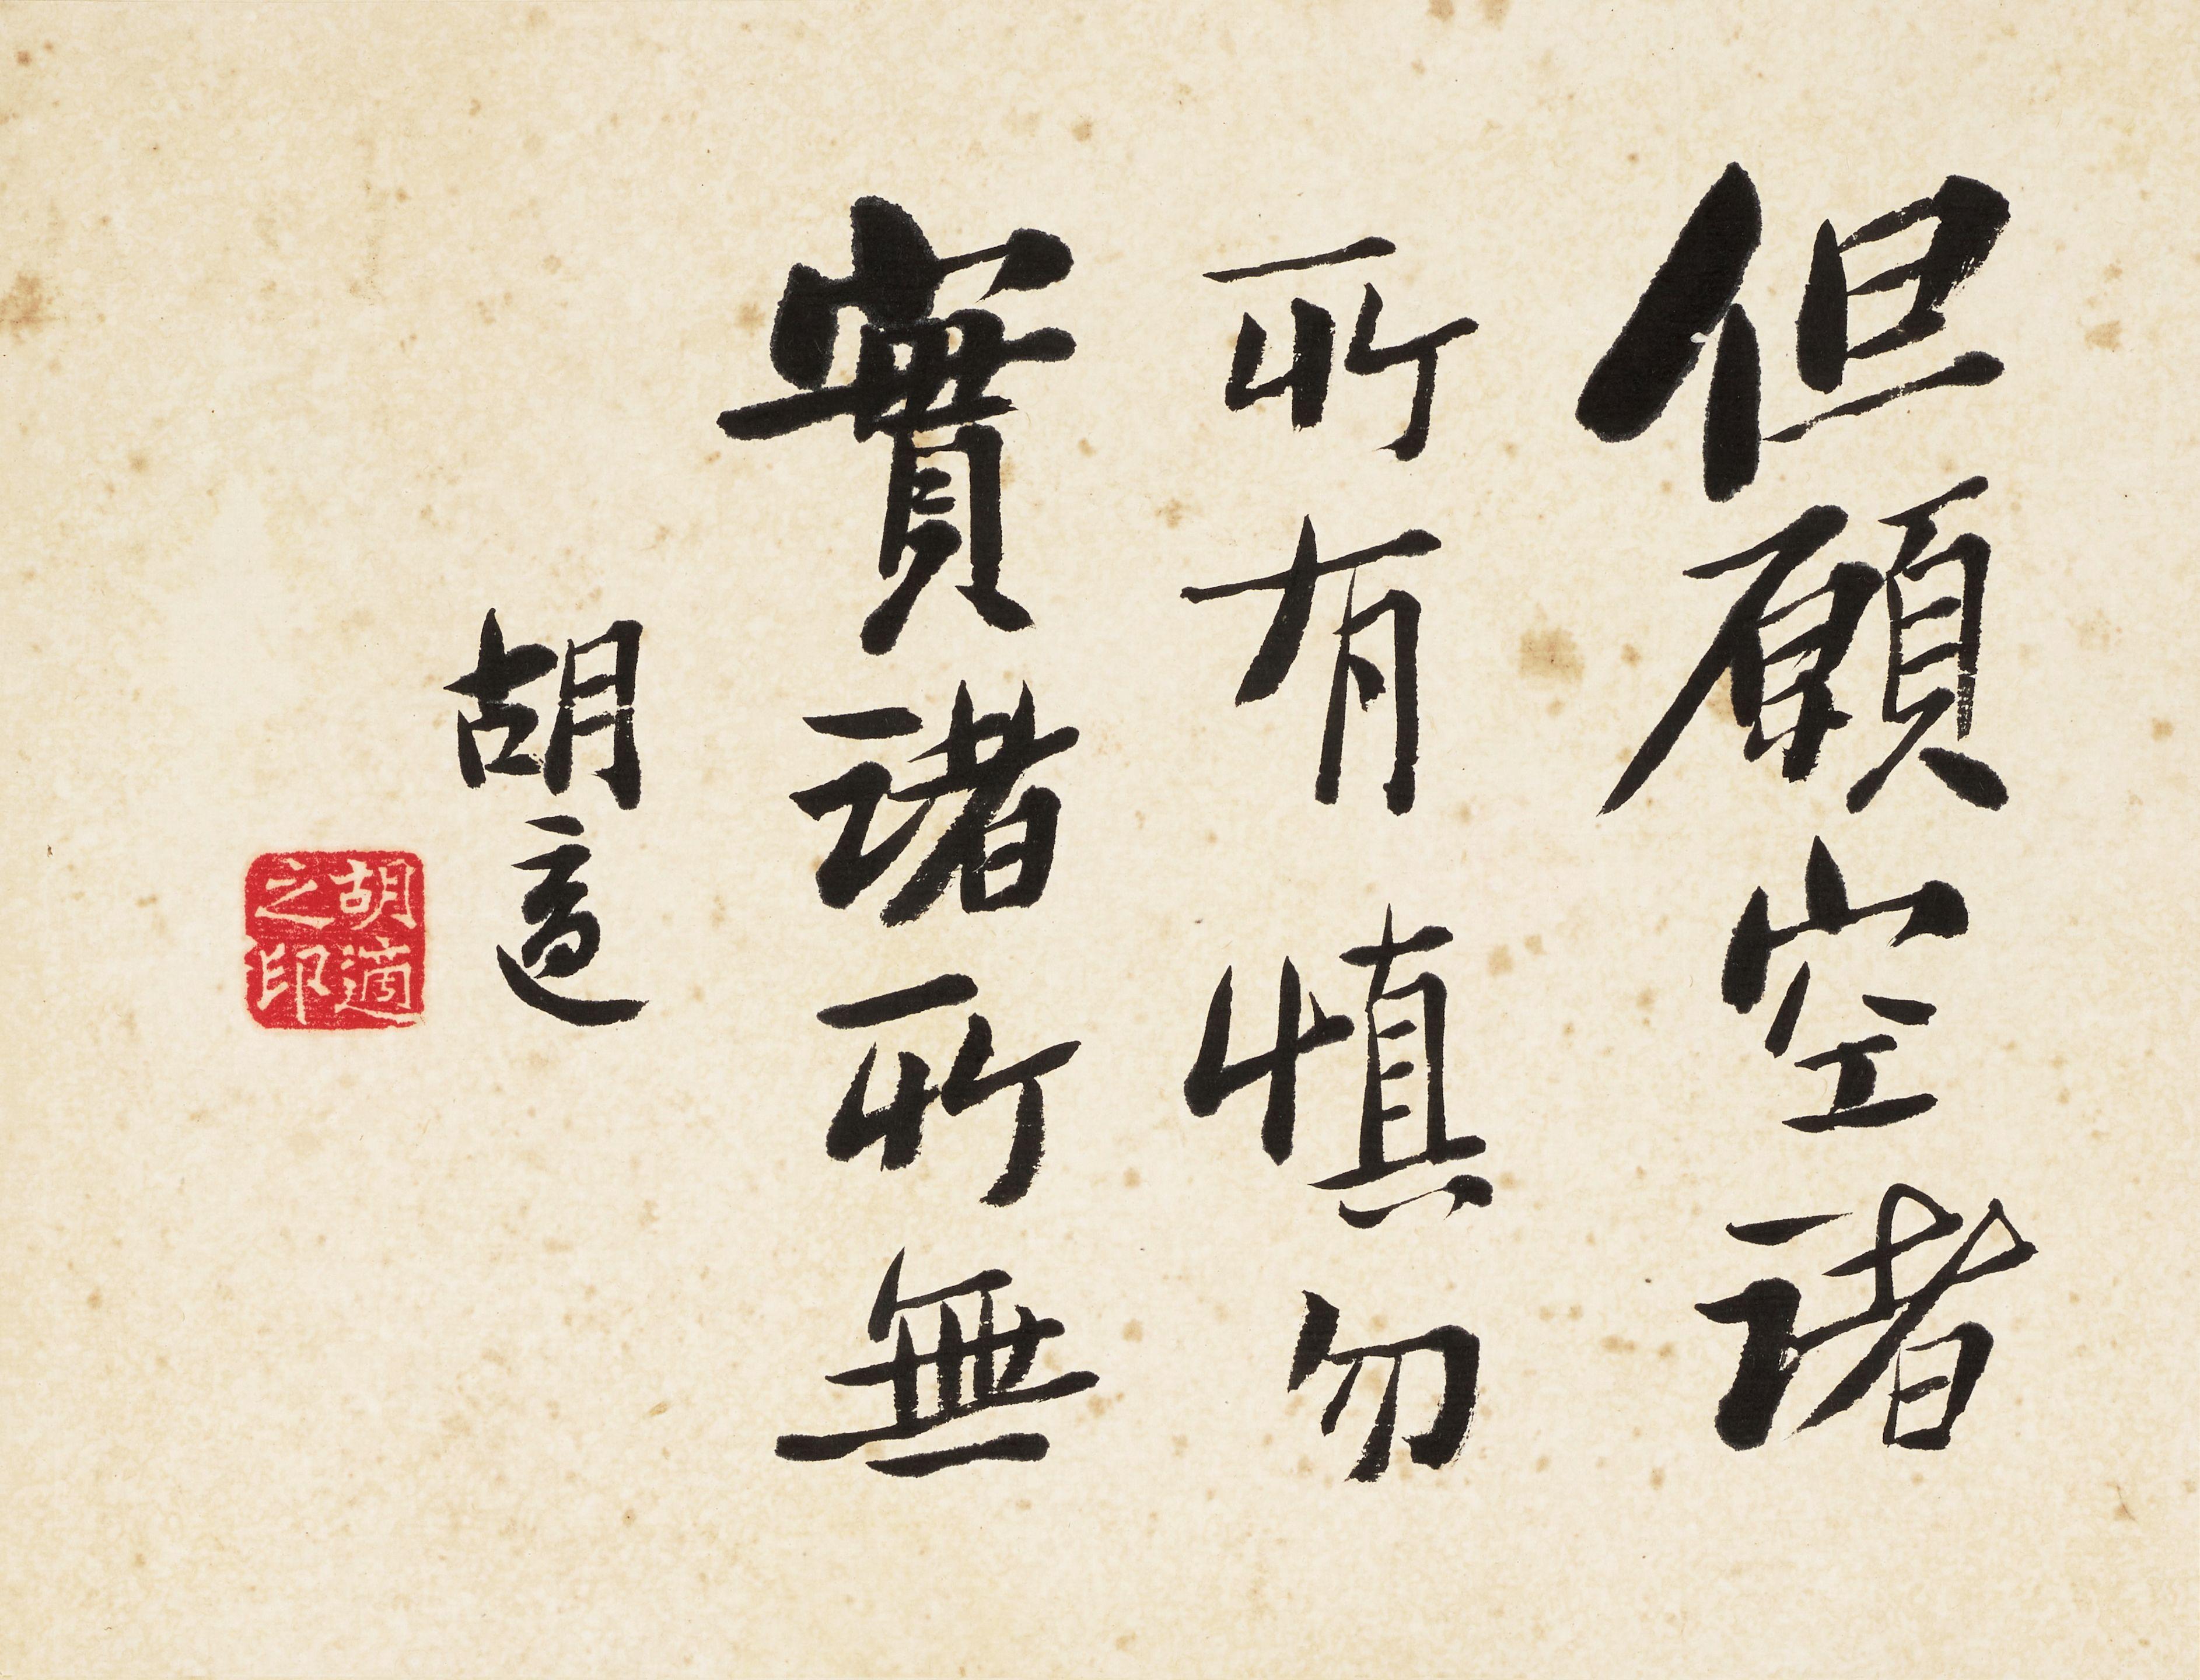 但願空諸
所有慎勿
實諸所無
胡適
胡適
之印